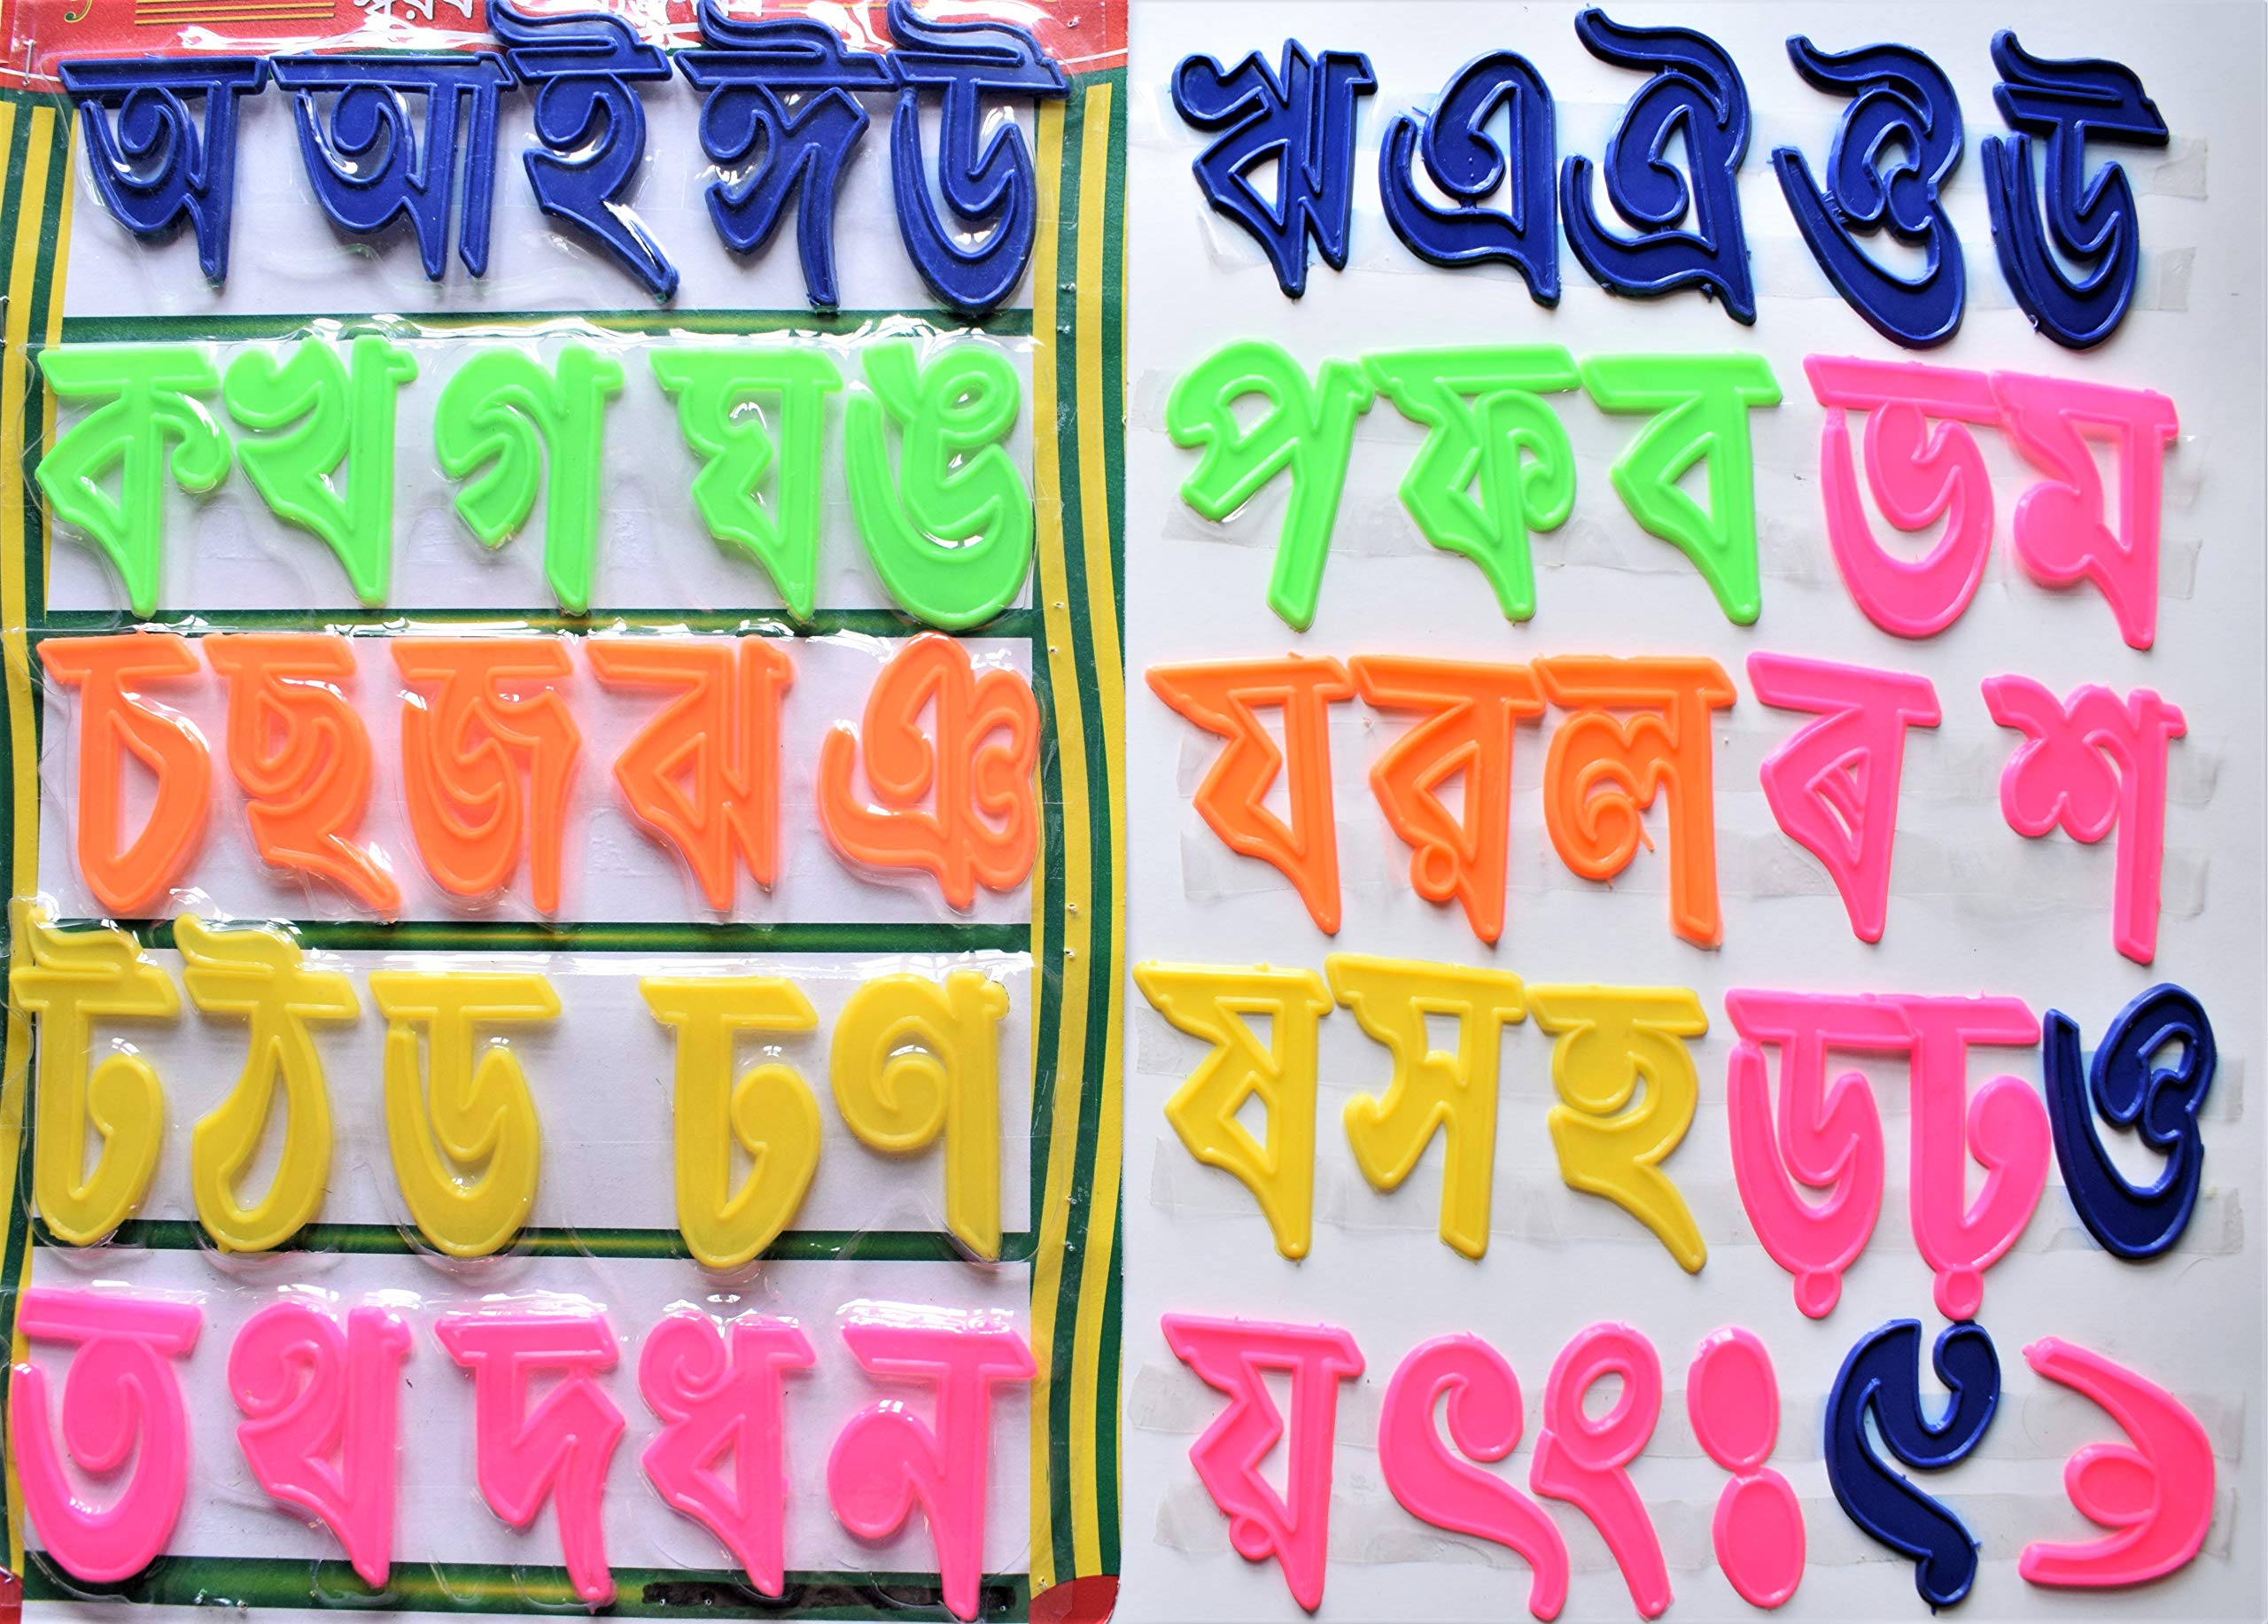 অ আ ই ঈ উ
ক খ গ ঘ ঙ
চ ছ জ ঝ ঞ
ট ঠ ড ঢ ণ
ত থ দ ধ ন
ঋ এ ঐ ঔ ঊ
প ফ ব ভ ম
য র ল ৰ শ
ষ স হ ড় ঢ় ও
য় ৎ ং ঃ